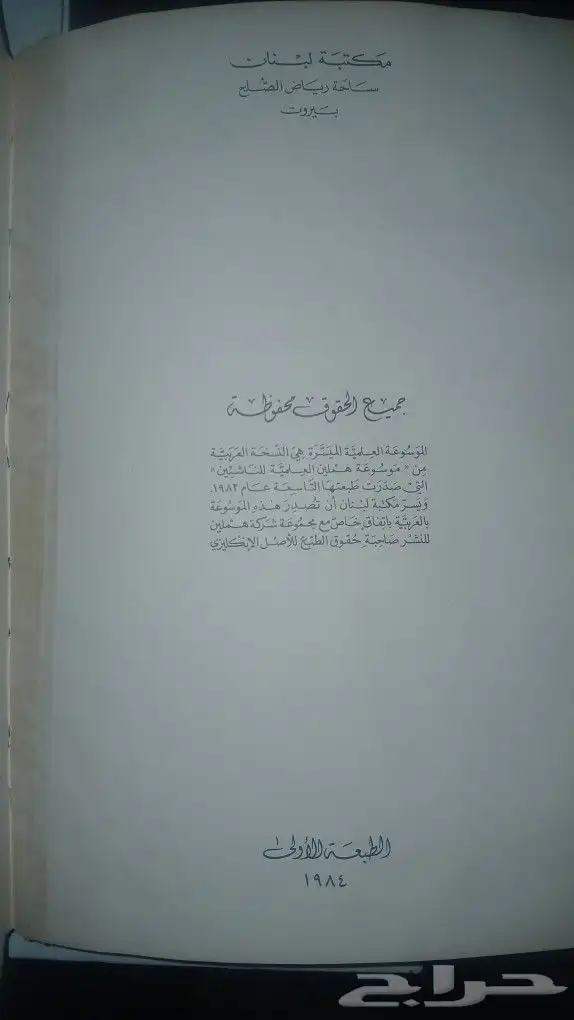 مكتبة لبنان
ساحة رياض الصلح
بيروت
جميع الحقوق محفوظة
الموسوعة العلمية الميسّرة هي النسخة العربية
من « موسوعة هملين العلمية للناشئين »
التي صدرت طبعتها التاسعة عام ١٩٨٢.
ويسر مكتبة لبنان أن تصدر هذه الموسوعة
بالعربية باتفاق خاص مع مجموعة شركة هملين
للنشر صاحبة حقوق الطبع للأصل الإنكليزي
الطبعة الأولى
١٩٨٤
حراج